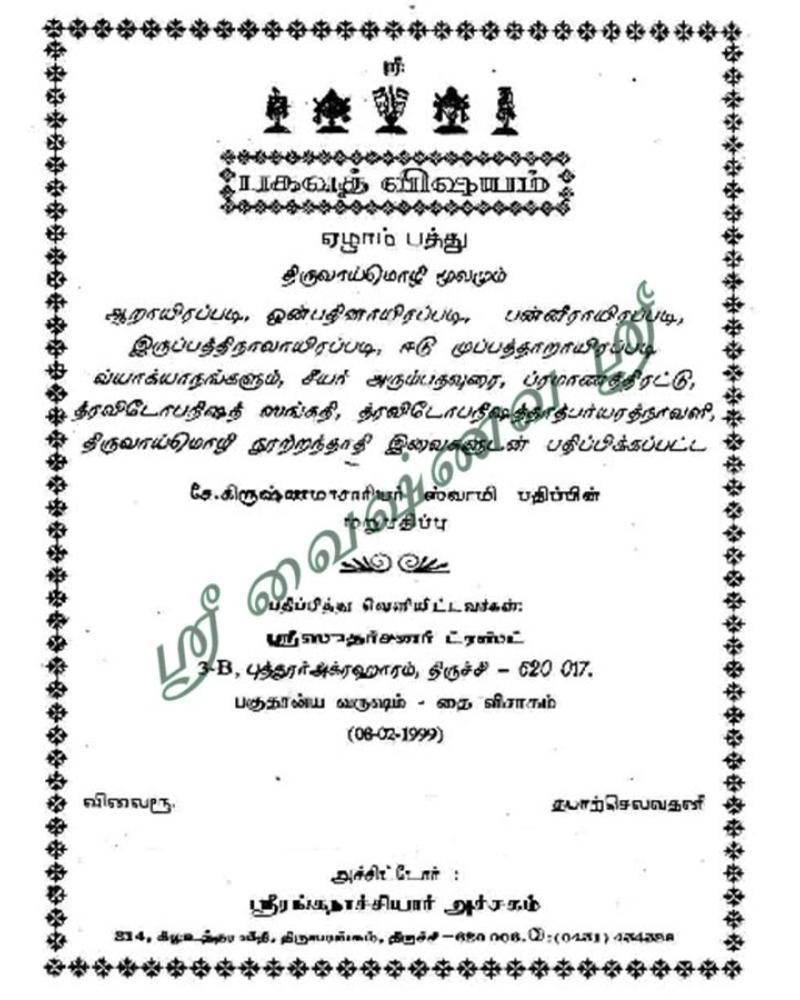 ஸ்ரீ:
பகவத் விஷயம்
ஏழாம் பத்து
திருவாய்மொழி மூலமும்
ஆறாயிரப்படி, ஒன்பதினாயிரப்படி, பன்னீராயிரப்படி,
இருப்பத்திநாலாயிரப்படி, ஈடு முப்பத்தாறாயிரப்படி
வ்யாக்யாநங்களும், சீயர் அரும்பதவுரை, ப்ரமாணத்திரட்டு,
த்ரவிடோபநிஷத் ஸங்கதி, த்ரவிடோபநிஷத்தாத்பர்யரத்நாவளி,
திருவாய்மொழி நூற்றந்தாதி இவைகளுடன் பதிப்பிக்கப்பட்ட
சே.கிருஷ்ணமாசாரியர் ஸ்வாமி பதிப்பின்
மறுபதிப்பு
பதிப்பித்து வெளியிட்டவர்கள்:
ஸ்ரீஸுதர்சனர் ட்ரஸ்ட்
3-B, புத்தூர்அக்ரஹாரம், திருச்சி – 620 017.
பகுதான்ய வருஷம் - தை விசாகம்
(08-02-1999)
விலைரூ.
தபாற்செலவுதனி
அச்சிட்டோர் :
ஸ்ரீரங்கநாச்சியார் அச்சகம்
214, கீழஉத்தரவீதி, திருவரங்கம், திருச்சி – 620 006.
ஸ்ரீ வைஷ்ணவ ஸ்ரீ